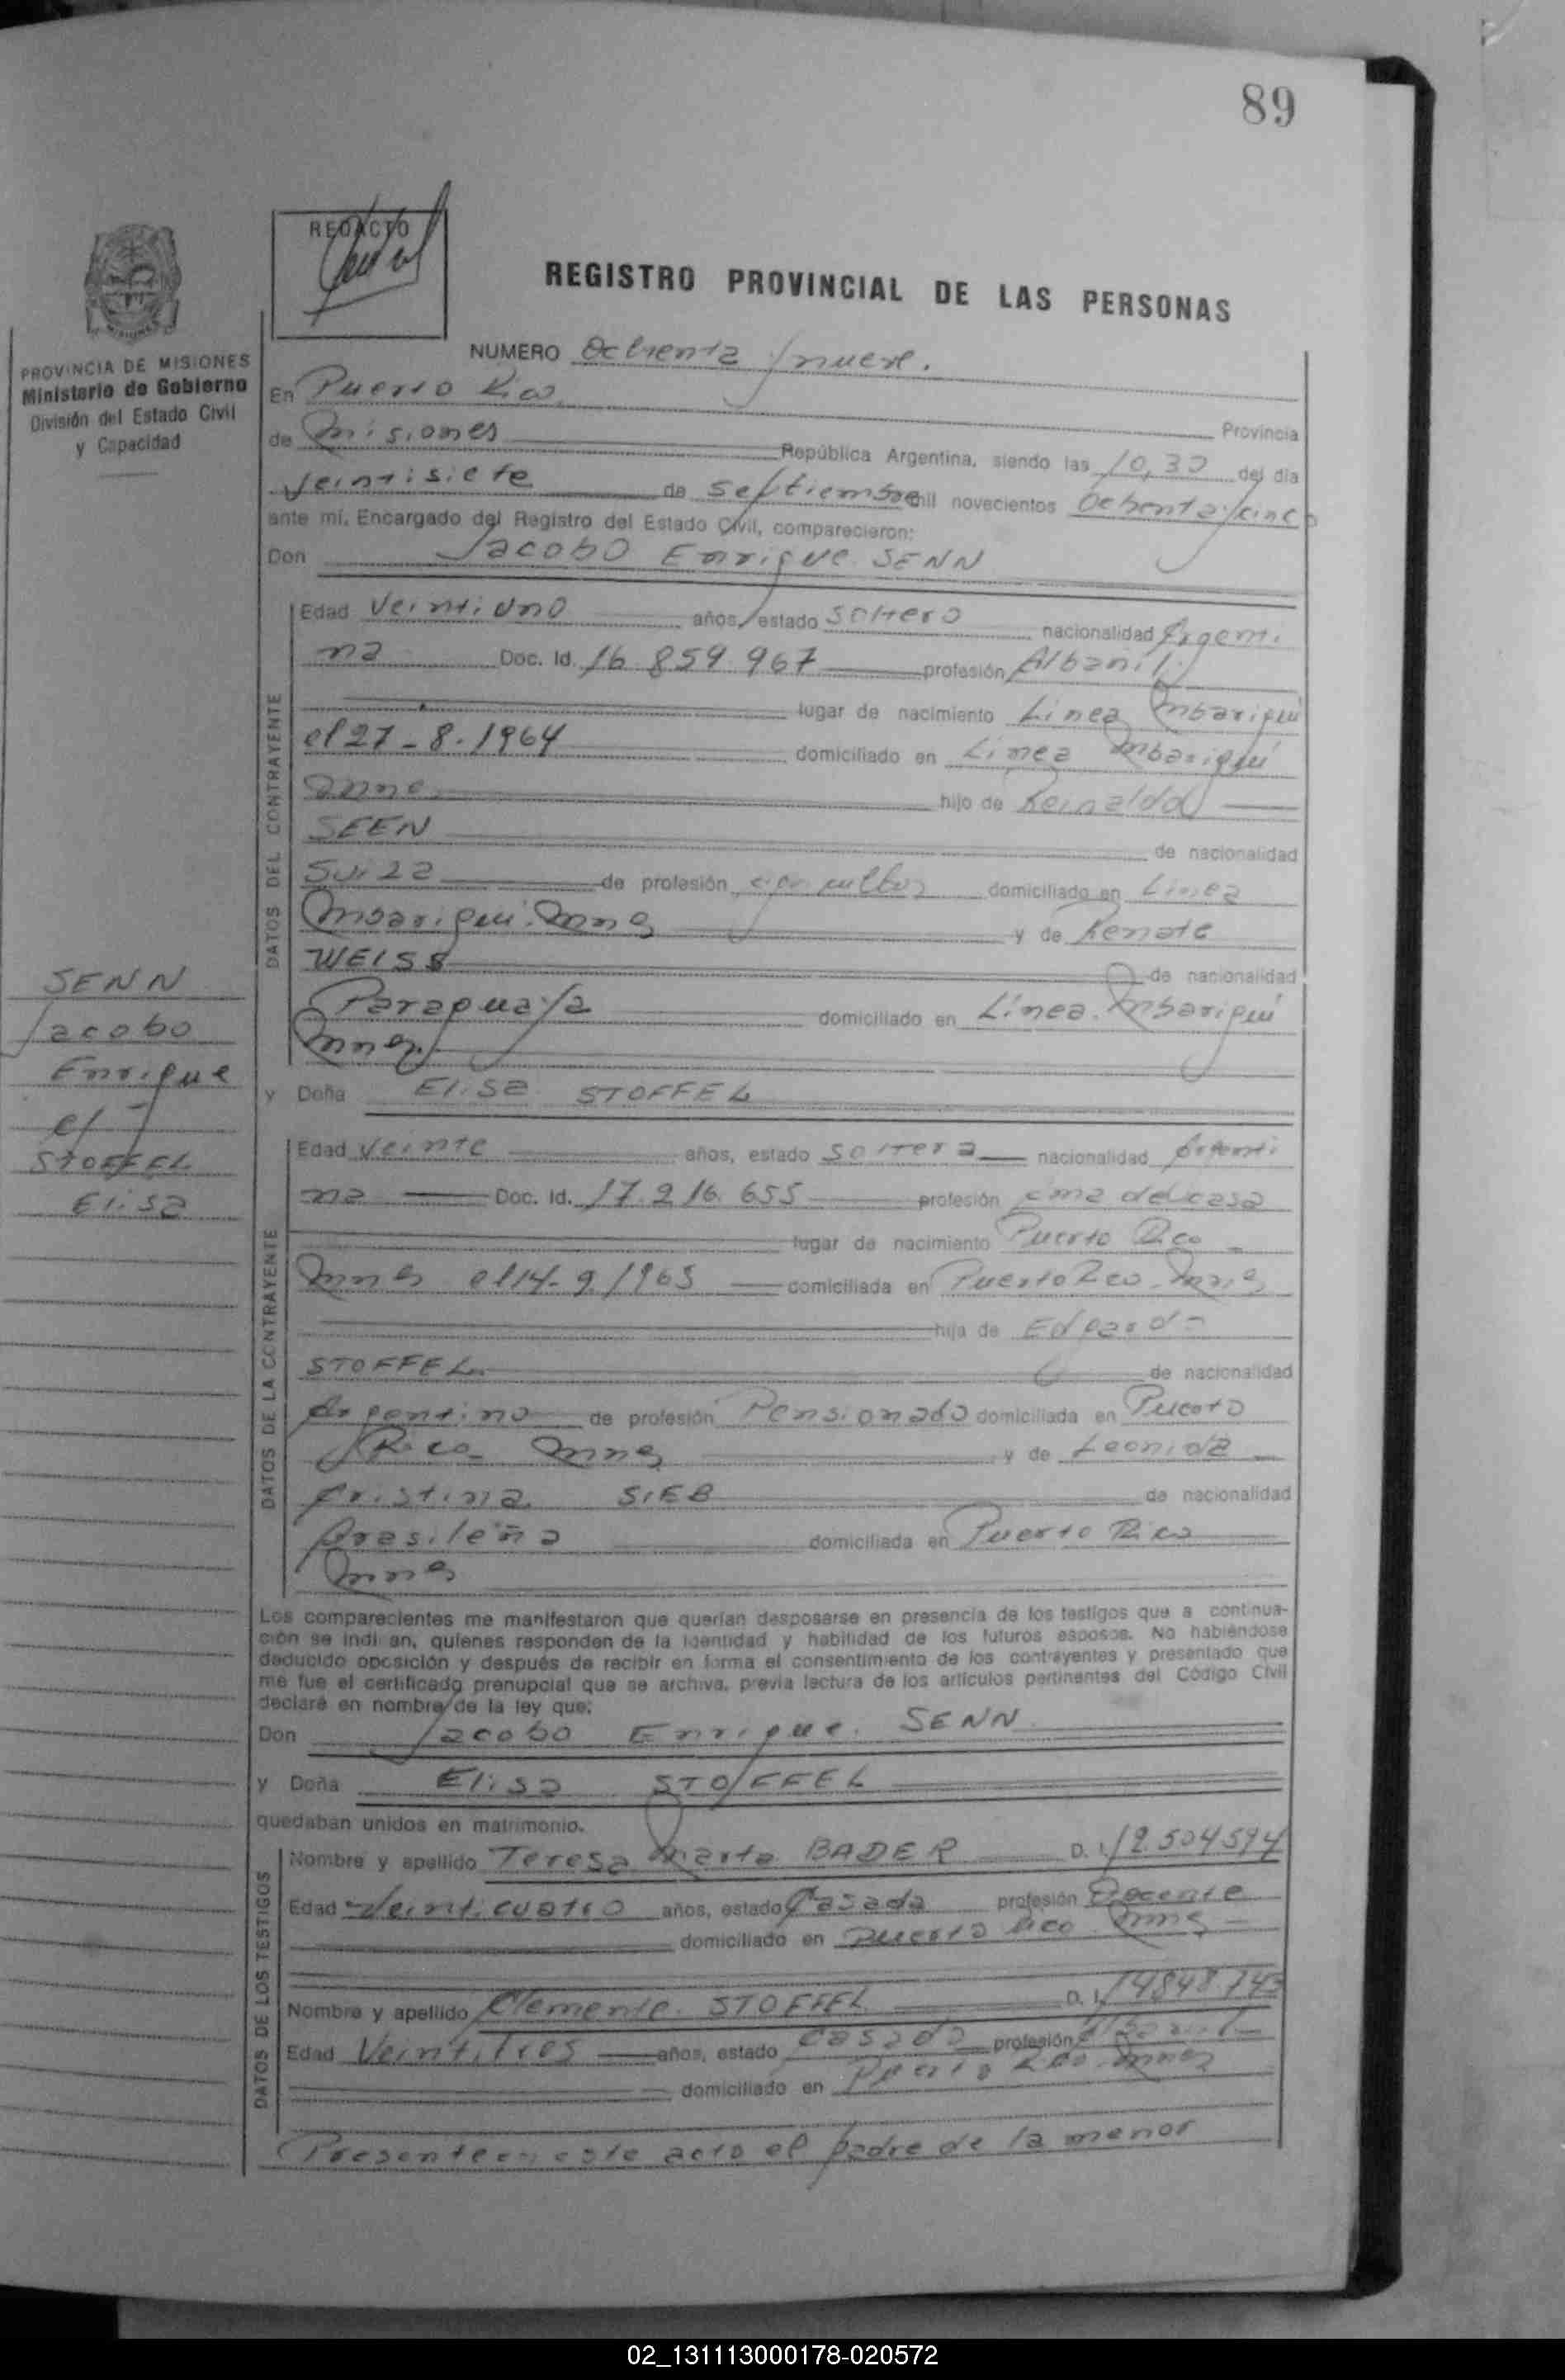 89
REDACTO
REGISTRO PROVINCIAL DE LAS PERSONAS
PROVINCIA DE MISIONES
Ministerio de Gobierno
División del Estado Civil
y Capacidad
NUMERO Ochenta y nueve.
En Puerto Rico
Provincia
de Misiones República Argentina, siendo las 10,30 del día
veintisiete de Septiembre mil novecientos Ochenta y cinco
ante mí, Encargado del Registro del Estado Civil, comparecieron:
Don Jacobo Enrique SENN
DATOS DEL CONTRAYENTE
Edad Veintiuno años, estado Soltero nacionalidad Argenti
na Doc. Id. 16 859.967 profesión Albañil
lugar de nacimiento Línea Mbariguí
el 27-8-1964 domiciliado en Línea Mbariguí
hijo de Reinaldo
SEEN de nacionalidad
Suiza de profesión agricultor domiciliado en Línea
Mbariguí Mnes y de Renate
WEISS de nacionalidad
Paraguaya domiciliado en Línea Mbariguí
Mnes
SENN
Jacobo
Enrique
c/
STOFFEL
Elisa
y Doña Elisa STOFFEL
DATOS DE LA CONTRAYENTE
Edad Veinte años, estado Soltera nacionalidad Argenti
na Doc. Id. 17.216.655 profesión ama de casa
lugar de nacimiento Puerto Rico
Mnes el 14-9-1965 domiciliada en Puerto Rico Mnes
hija de Edgardo
STOFFEL de nacionalidad
Argentino de profesión Pensionado domiciliada en Puerto
Rico Mnes y de Leonida
Cristina SIEB de nacionalidad
Brasileña domiciliada en Puerto Rico
Mnes
Los comparecientes me manifestaron que querían desposarse en presencia de los testigos que a continua-
ción se indi an, quienes responden de la identidad y habilidad de los futuros esposos. No habiéndose
deducido oposición y después de recibir en forma el consentimiento de los contrayentes y presentado que
me fue el certificado prenupcial que se archiva, previa lectura de los artículos pertinentes del Código Civil
declaré en nombre de la ley que:
Don Jacobo Enrique SENN
y Doña Elisa STOFFEL
quedaban unidos en matrimonio.
DATOS DE LOS TESTIGOS
Nombre y apellido Teresa Marta BADER D. I. 12.504594
Edad Veinticuatro años, estado Casada profesión Docente
domiciliado en Puerto Rico Mnes
Nombre y apellido Clemente STOFFEL D. I. 14848.143
Edad Veintitres años, estado Casado profesión Albañil
domiciliado en Puerto Rico Mnes
Presente en este acto el padre de la menor
02_131113000178-020572